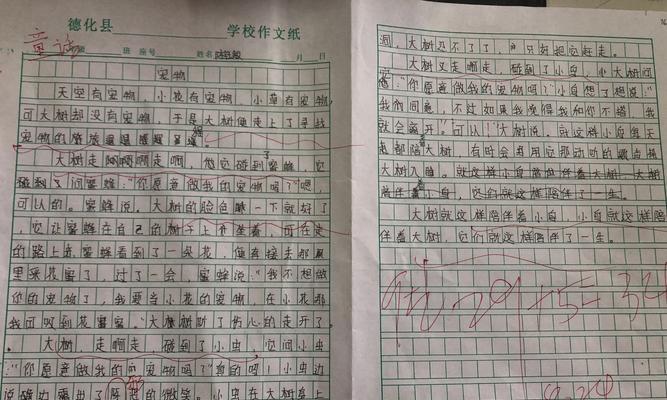 德化县 学校作文纸
童话 班 座号 姓名 月 日
宠物
天空有宠物，小花有宠物，小草有宠物，
可大树却没有宠物，于是大树便走上了寻找
宠物的
大树走啊啊啊走啊，碰到蜜蜂，它
问蜜蜂："你愿意做我的宠物吗？"嗯，
可以的。蜜蜂说。大树的脸色一下就好了
，它让蜜蜂在自己的树干上坐着，可在走
的路上，蜜蜂看到了一朵花，便直接去那
里采花蜜了，过了一会，蜜蜂说："我不想做
你的宠物了，我要当小花的宠物，在小花那
我可以吸到花蜜。"大树听了伤心的走开了。
大树走啊走，碰到了小虫，它问小虫
："你愿意做我的宠物吗？"真的吗！小虫边
说边露出了的微笑。小虫在大树身上
洞，大树忍不了了，只好把它赶走。
大树又走啊走，碰到了小鸟，小大树问
："你愿意做我的宠物吗？"小鸟想了想说："
我同意，不过如果我觉得我和你不搭，我
就会离开。"可以！"大树说。就这样小鸟每天
都陪大树，有时会用它那动听的
大树入睡。就这样小鸟陪伴着大树，大树
陪伴着小鸟，它们就这样陪伴了一生。
大树就这样陪伴着小鸟，小鸟就这样陪
伴着大树，它们就这样陪伴了一生。
29+5=34